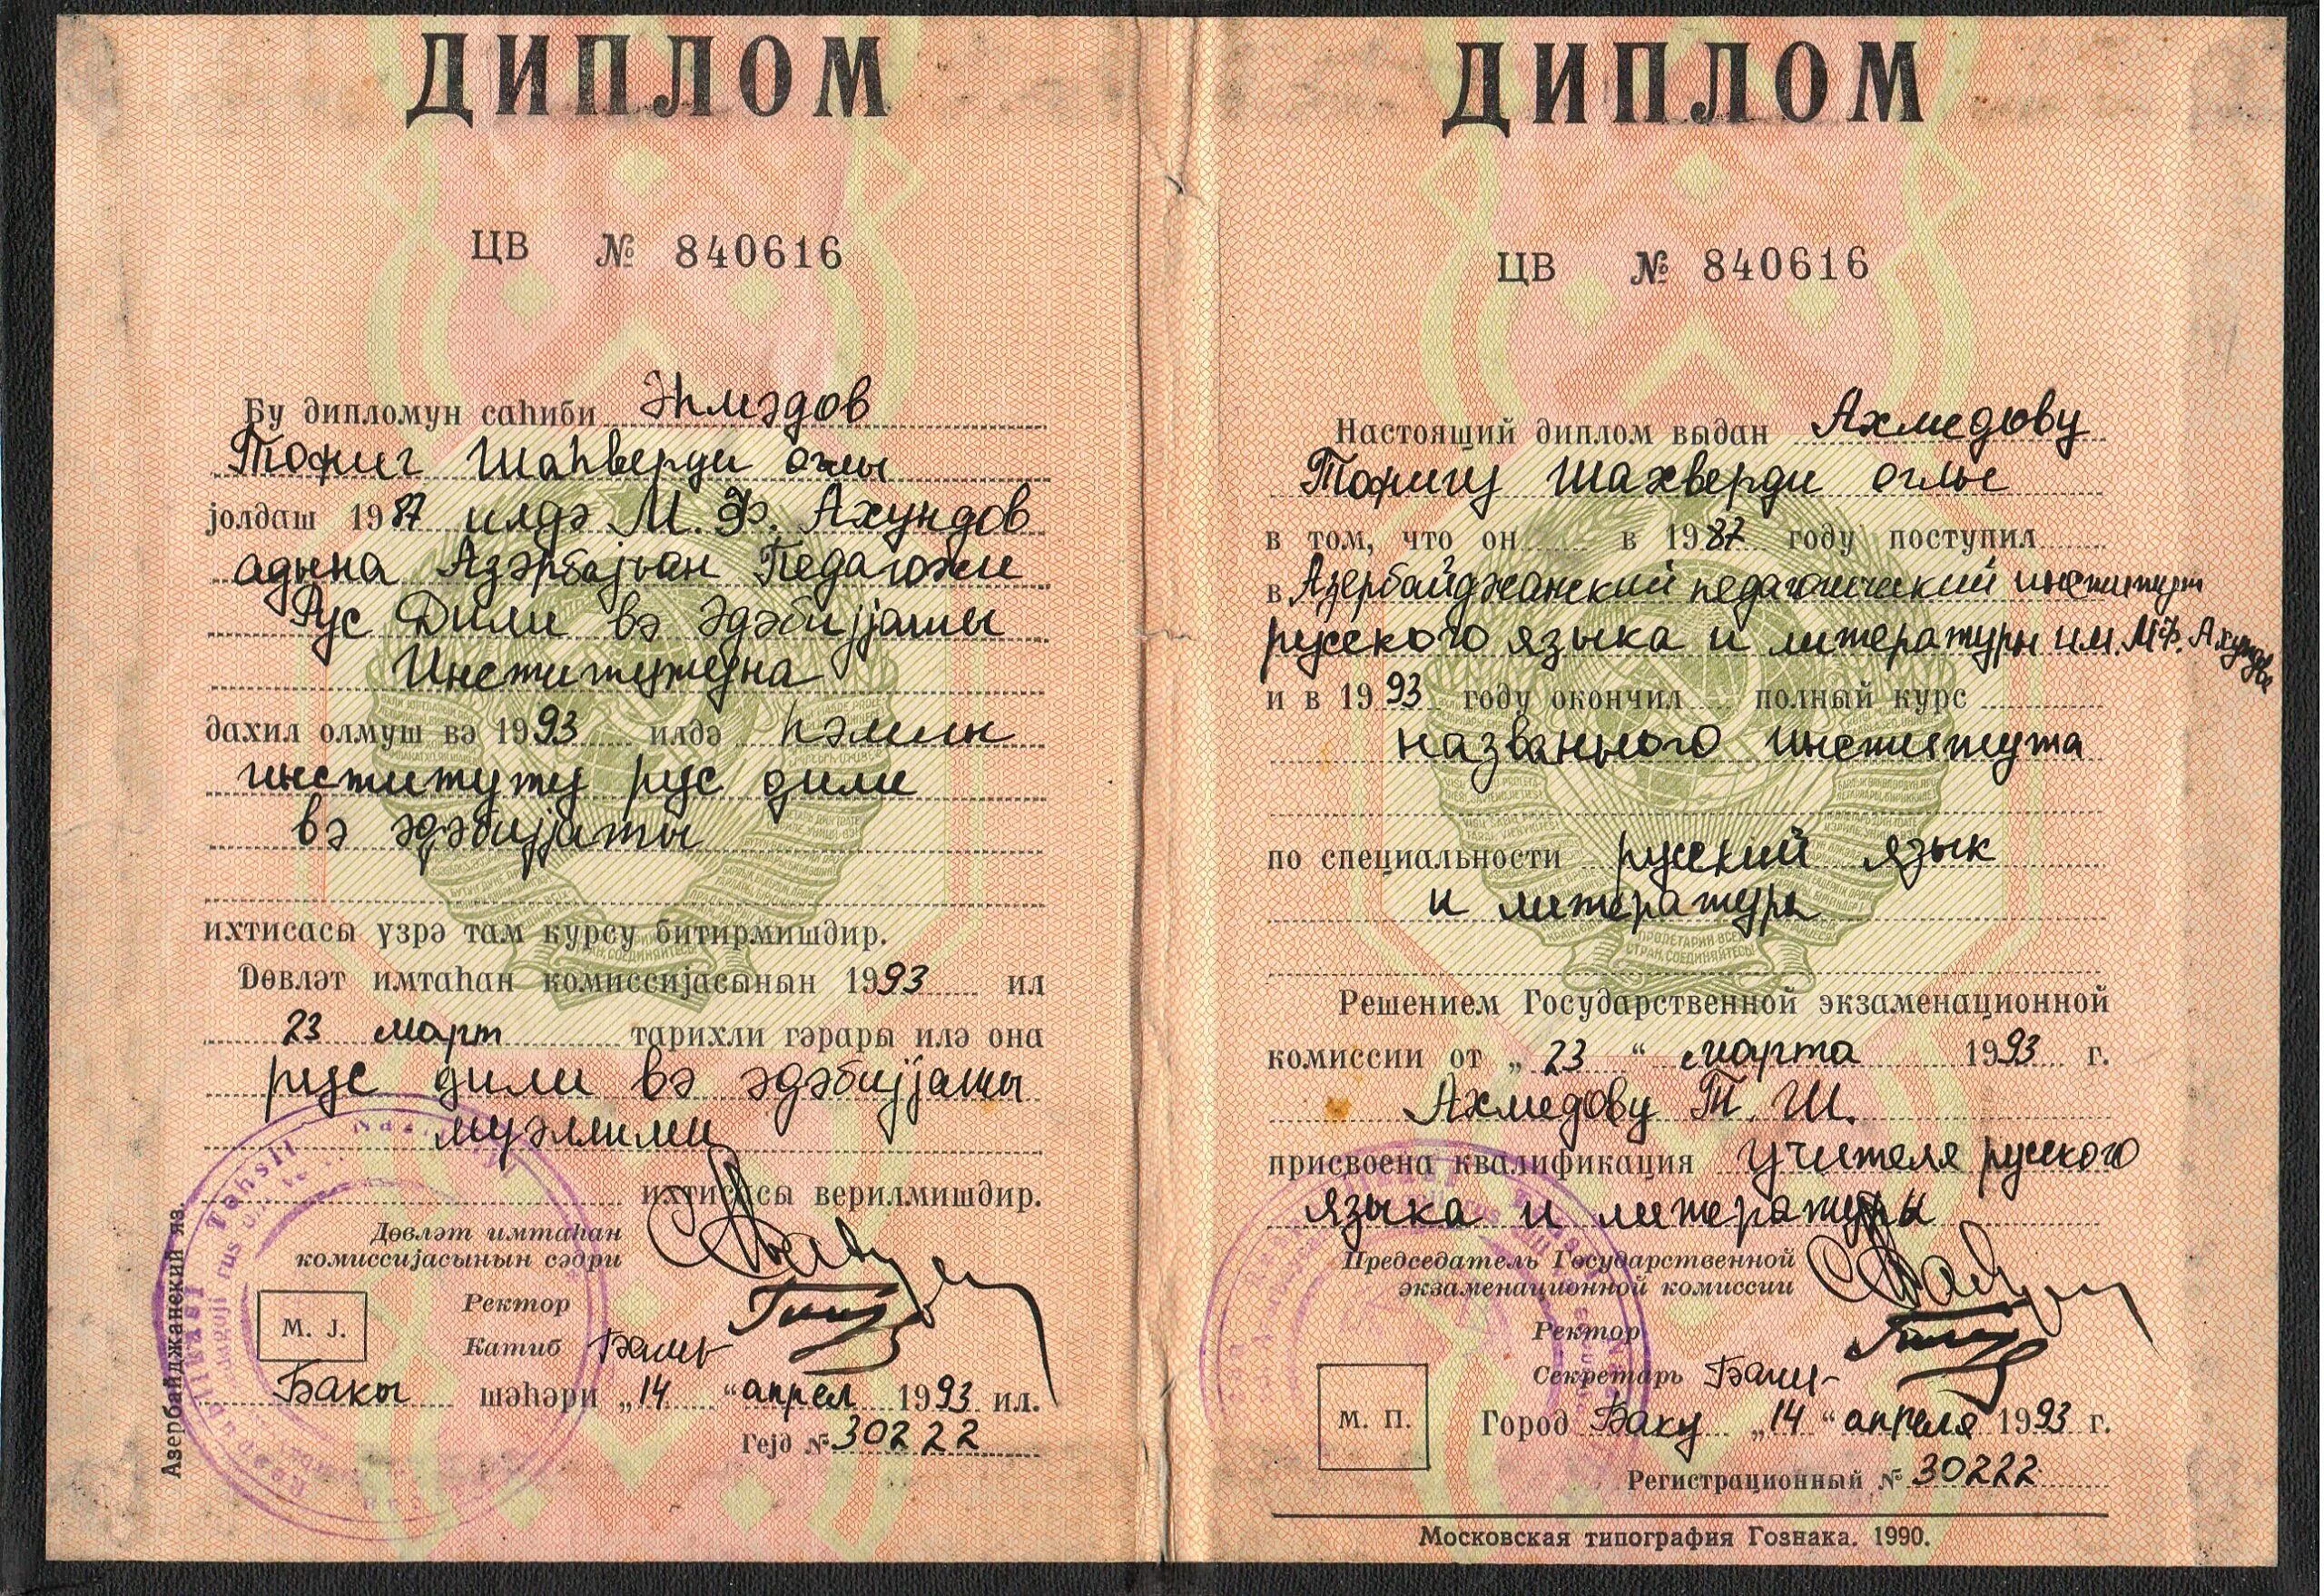 ДИПЛОМ
ЦВ № 840616
Бу дипломун саһиби Әһмәдов
Тофиг Шаһверди оглы
јолдаш 1987 илдә М. Ф. Ахундов
адына Азәрбајҹан Педагожи
Рус Дили вә Әдәбијјаты
Институтуна
дахил олмуш вә 1993 илдә һәмин
институту рус дили
вә әдәбијјаты
ихтисасы үзрә там курсу битирмишдир.
Дөвләт имтаһан комиссијасынын 1993 ил
23 март тарихли гәрары илә она
рус дили вә әдәбијјаты
муәллими
ихтисасы верилмишдир.
Дөвләт имтаһан
комиссијасынын сәдри
Ректор
М. Ј.
Катиб
Бакы шәһәри „14 “ апрел 1993 ил.
Гејд № 30222
Азербайджанский яз.
ДИПЛОМ
ЦВ № 840616
Настоящий диплом выдан Ахмедову
Тофигу Шахверди оглы
в том, что он в 1987 году поступил
в Азербайджанский педагогический институт
русского языка и литературы им. М.Ф. Ахундова
и в 1993 году окончил полный курс
названного института
по специальности русский язык
и литература
Решением Государственной экзаменационной
комиссии от „ 23 “ марта 1993 г.
Ахмедову Т. Ш.
присвоена квалификация учителя русского
языка и литературы
Председатель Государственной
экзаменационной комиссии
Ректор
Секретарь
М. П.
Город Баку „14 “ апреля 1993 г.
Регистрационный № 30222
Московская типография Гознака. 1990.